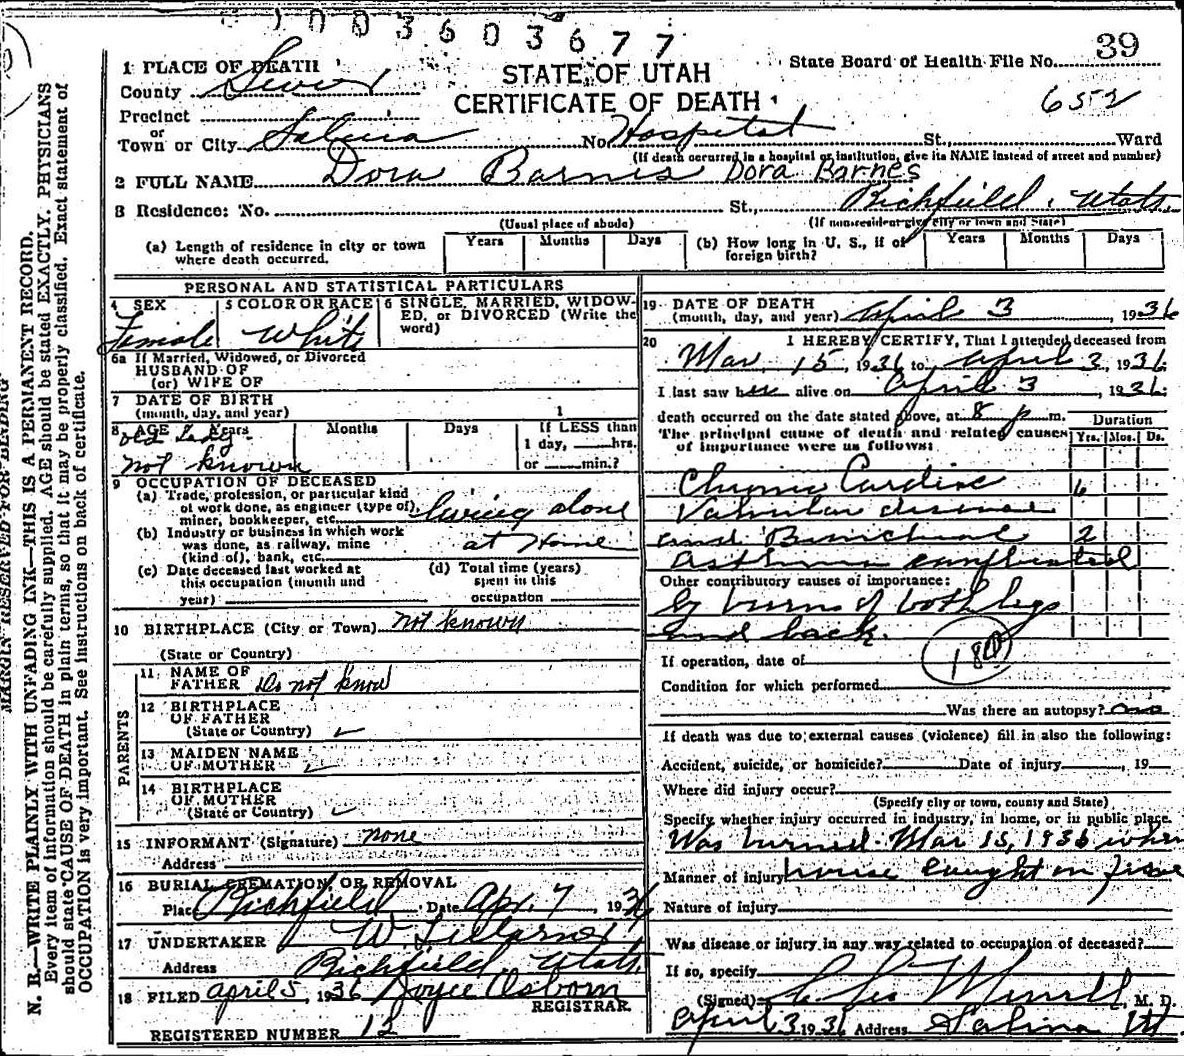 003603677
39
State Board of Health File No.
1 PLACE OF DEATH
County Sevier
STATE OF UTAH
CERTIFICATE OF DEATH
6552
Precinct
or
Town or City Salina No. Hospital St., Ward
(If death occurred in a hospital or institution, give its NAME instead of street and number)
2 FULL NAME Dora Barnes Dora Barnes
3 Residence: No. St., Richfield, Utah
(Usual place of abode) (If nonresident give city or town and State)
(a) Length of residence in city or town where death occurred. Years Months Days (b) How long in U. S., if of foreign birth? Years Months Days
PERSONAL AND STATISTICAL PARTICULARS
4 SEX Female
5 COLOR OR RACE White
6 SINGLE, MARRIED, WIDOWED, or DIVORCED (Write the word)
6a If Married, Widowed, or Divorced
HUSBAND OF
(or) WIFE OF
7 DATE OF BIRTH
(month, day, and year) 1
8 AGE Years Months Days If LESS than
1 day, hrs.
or min.?
old Lady
not known
9 OCCUPATION OF DECEASED
(a) Trade, profession, or particular kind
of work done, as engineer (type of),
miner, bookkeeper, etc. living alone
(b) Industry or business in which work
was done, as railway, mine
(kind of), bank, etc. at Home
(c) Date deceased last worked at
this occupation (month and
year)
(d) Total time (years)
spent in this
occupation
10 BIRTHPLACE (City or Town) not known
(State or Country)
PARENTS
11 NAME OF
FATHER Do not know
12 BIRTHPLACE
OF FATHER
(State or Country)
13 MAIDEN NAME
OF MOTHER
14 BIRTHPLACE
OF MOTHER
(State or Country)
15 INFORMANT (Signature) none
Address
16 BURIAL, CREMATION, OR REMOVAL
Place Richfield Date Apr. 7, 1936
17 UNDERTAKER
Address Richfield Utah
18 FILED April 5, 1936 Joyce Osborn
REGISTRAR.
REGISTERED NUMBER 12
19 DATE OF DEATH
(month, day, and year) April 3, 1936
20 I HEREBY CERTIFY, That I attended deceased from
Mar. 15, 1936 to April 3, 1936
I last saw her alive on April 3, 1936:
death occurred on the date stated above, at 8 p m.
The principal cause of death and related causes
of importance were as follows:
Duration
Yrs. Mos. Ds.
Chronic Cardiac 6
Valvular disease
and Bronchial 2
Asthma complicated
Other contributory causes of importance:
by burns of both legs
and back.
If operation, date of
Condition for which performed
Was there an autopsy? no
If death was due to external causes (violence) fill in also the following:
Accident, suicide, or homicide? Date of injury , 19
Where did injury occur?
(Specify city or town, county and State)
Specify whether injury occurred in industry, in home, or in public place.
Was burned Mar 15, 1936 when
Manner of injury house caught on fire
Nature of injury
Was disease or injury in any way related to occupation of deceased?
If so, specify
(Signed) Merrill, M. D.
April 3 1936 Address Salina Ut.
MARGIN RESERVED FOR BINDING
N. B.—WRITE PLAINLY WITH UNFADING INK—THIS IS A PERMANENT RECORD.
Every item of information should be carefully supplied. AGE should be stated EXACTLY. PHYSICIANS
should state CAUSE OF DEATH in plain terms, so that it may be properly classified. Exact statement of
OCCUPATION is very important. See instructions on back of certificate.